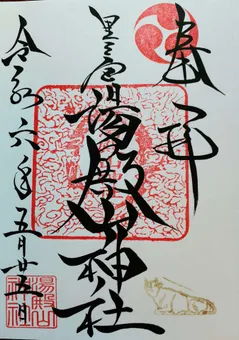 奉拝
里之宮
湯殿山神社
令和六年五月廿五日
湯殿山